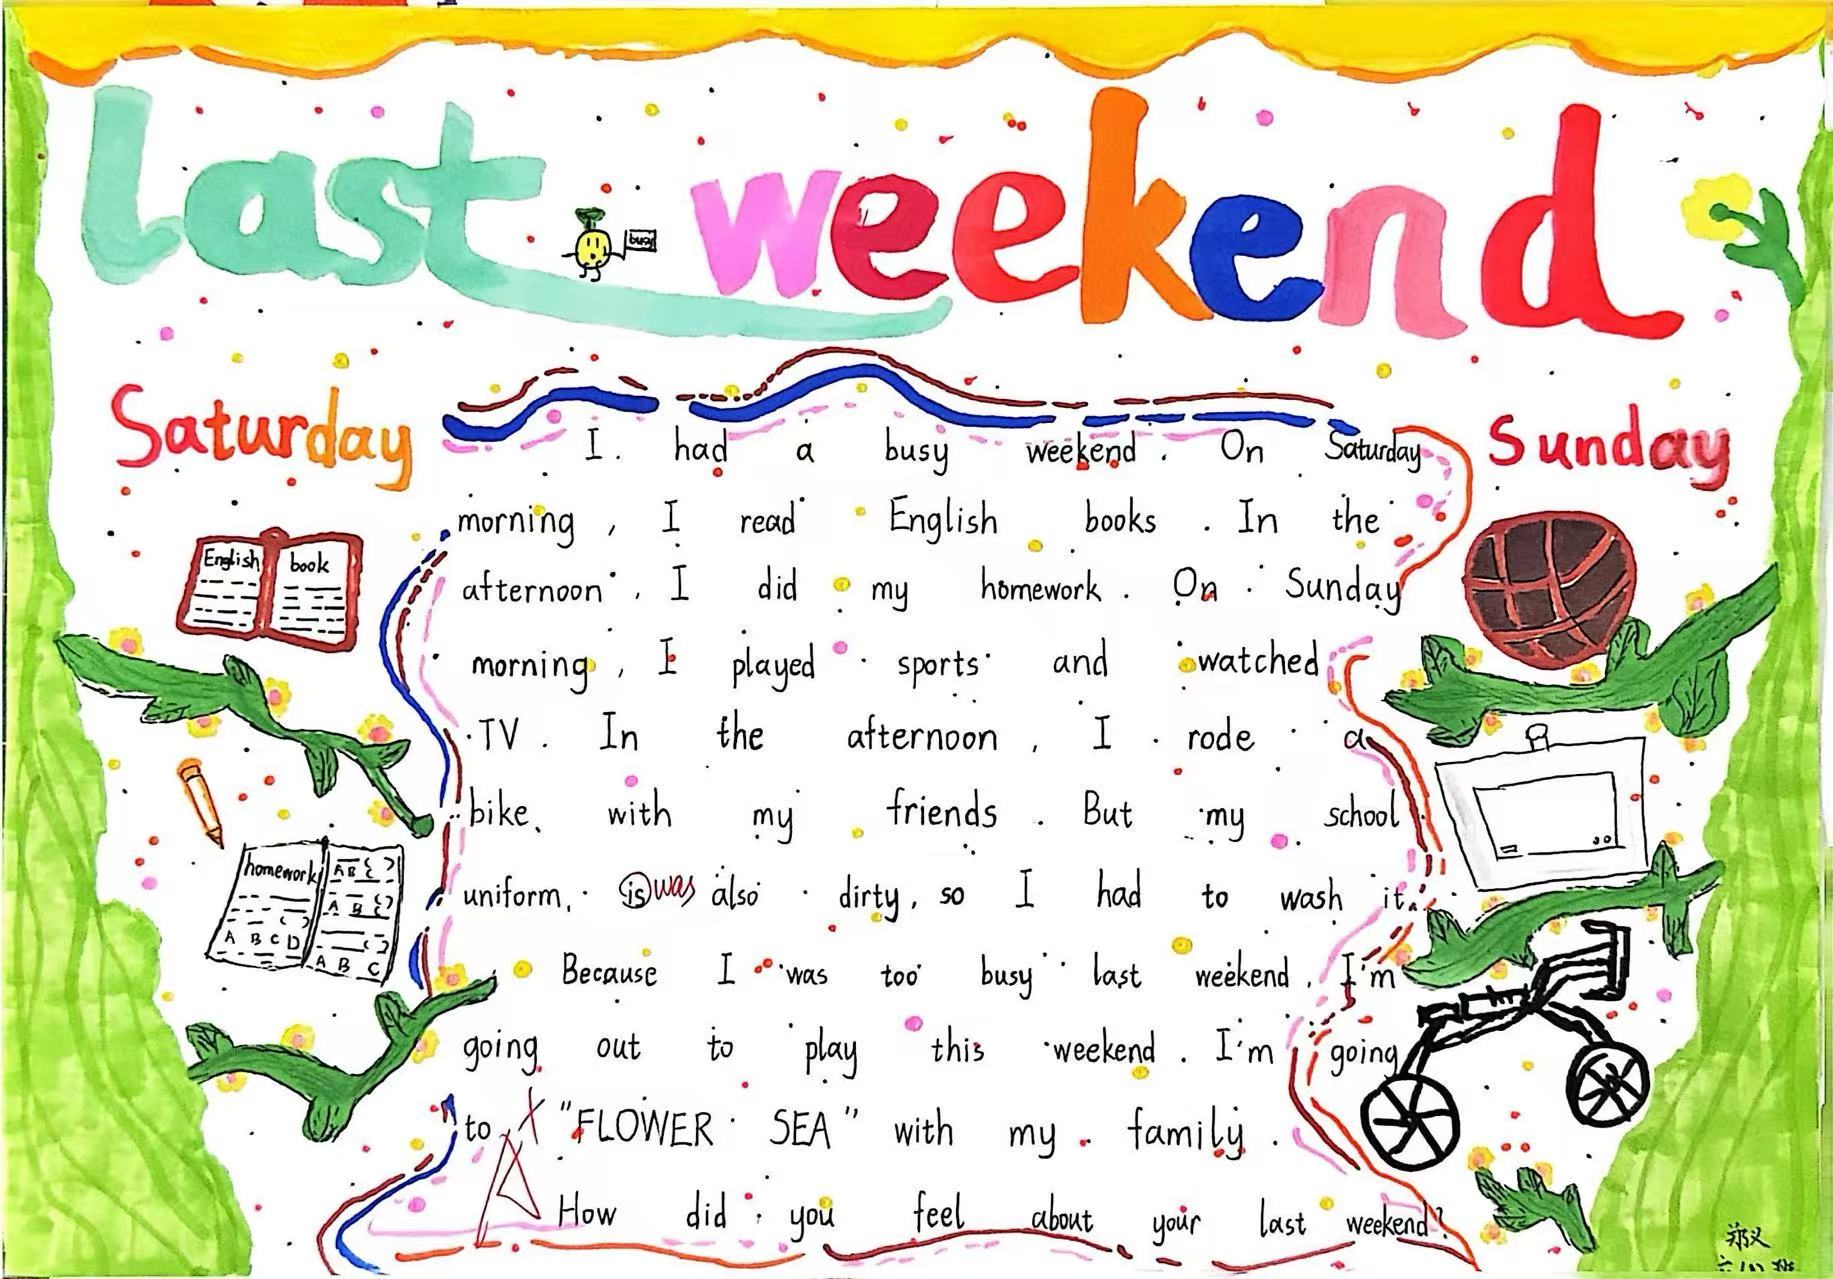 last weekend
busy
Saturday
Sunday
I had a busy weekend. On Saturday
morning, I read English books. In the
afternoon, I did my homework. On Sunday
morning, I played sports and watched
TV. In the afternoon, I rode a
bike with my friends. But my school
uniform is was also dirty, so I had to wash it.
Because I was too busy last weekend, I'm
going out to play this weekend. I'm going
to "FLOWER SEA" with my family.
How did you feel about your last weekend?
English book
homework
AB ( )
A B ( )
A B C D
A B C